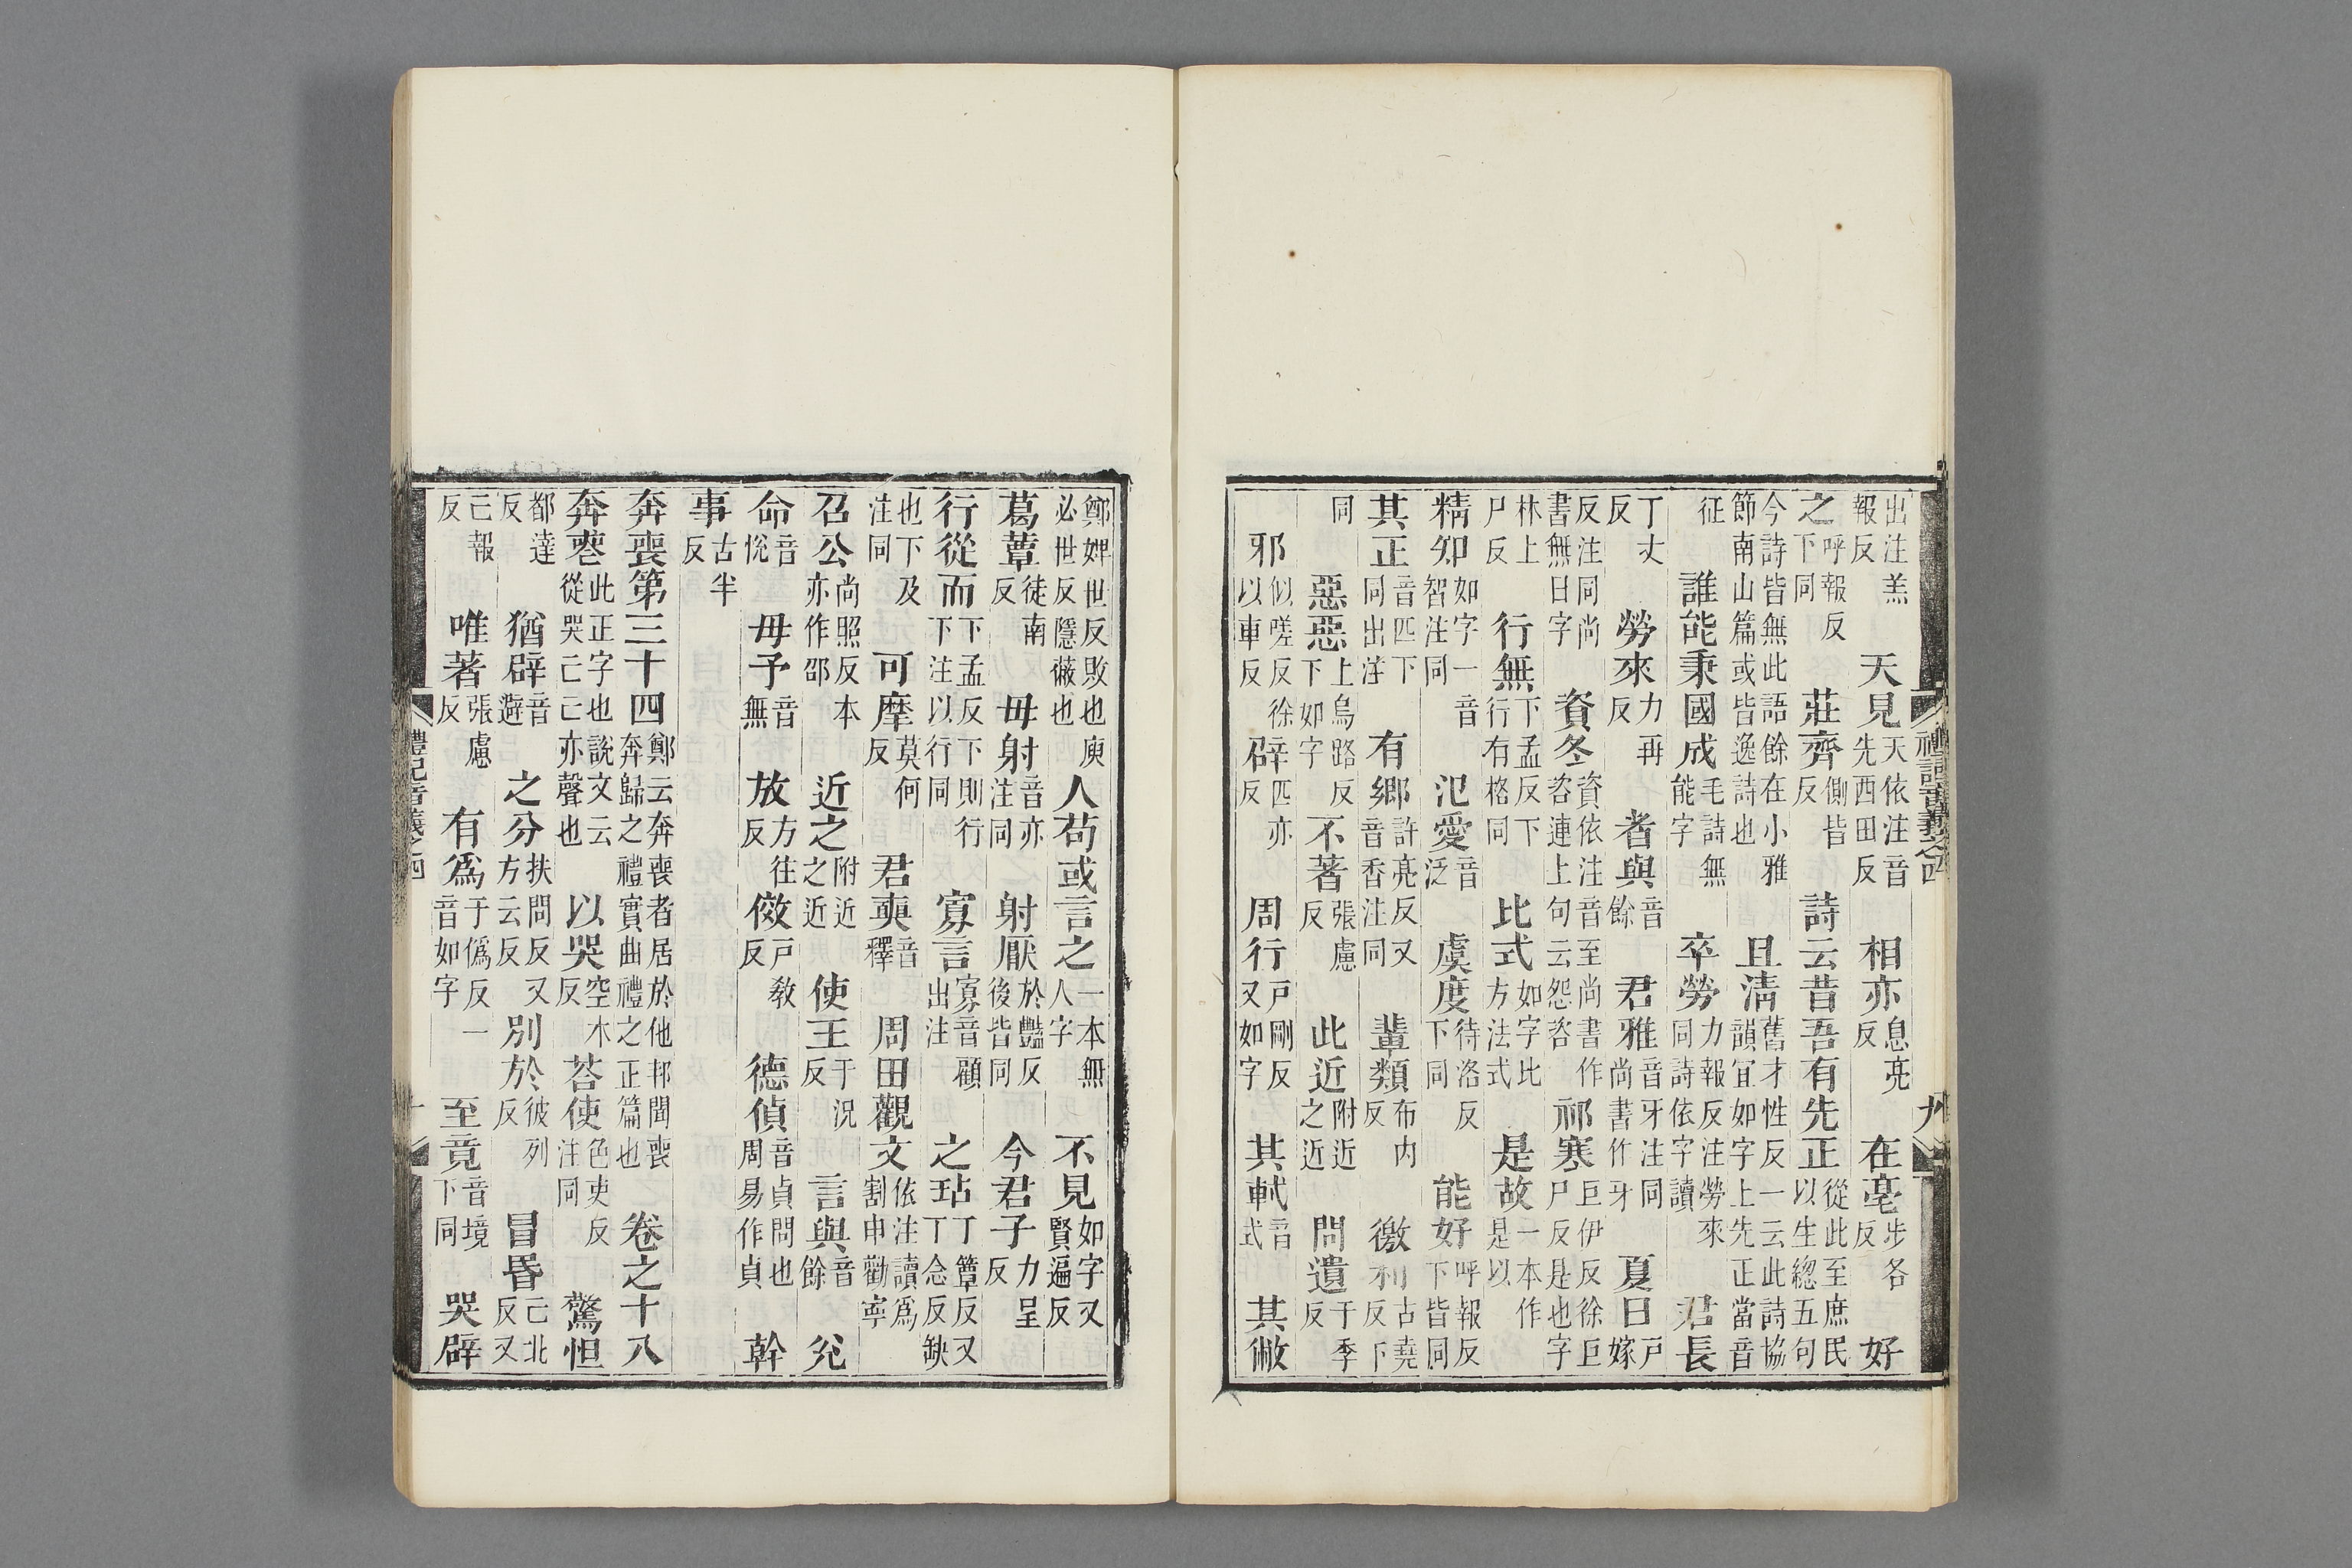 出注羔報反 天見天依注音先西田反 相亦息亮反 在亳步各反 好
之呼報反下同 莊齊側皆反 詩云昔吾有先正從此至庶民以生緫五句
今詩皆無此語餘在小雅節南山篇或皆逸詩也 且清舊才性反一云此詩協韻宜如字上先正當音
征 誰能秉國成毛詩無能字 卒勞力報反注勞來同詩依字讀 君長
丁丈反 勞來力再反 者與音餘 君雅音牙注同尚書作牙 夏日戸嫁
反注同尚書無日字 資冬資依注音至尚書作咨連上句云怨咨 祁寒巨伊反徐巨尸反是也字
林上尸反 行無下孟反下行有格同 比式如字比方法式 是故一本作是以
精知如字一音智注同 氾愛音泛 虞度待洛反下同 能好呼報反下皆同
其正音匹下同出注 有鄉許亮反又音香注同 輩類布内反 徼利古堯反下
同 惡惡上烏路反下如字 不著張慮反 此近附近之近 問遺于季反
邪似嗟反徐以車反 辟匹亦反 周行戸剛反又如字 其軾音式 其敝
禮記音義之四 九
鄭婢世反敗也庾必世反隱蔽也 人苟或言之一本無人字 不見如字又賢遍反
葛蕈徒南反 毋射音亦注同 射厭於豔反後皆同 今君子力呈反
行從而下孟反下則行下注以行同 寡言寡音顧出注 之玷丁簟反又丁念反缺
也下及注同 可摩莫何反 君奭音釋 周田觀文依注讀爲割申勸寧
召公尚照反本亦作邵 近之附近之近 使王于況反 言與音餘 兊
命音悅 毋予音無 放方往反 傚戸敎反 德偵音貞問也周易作貞 幹
事古半反
奔喪第三十四鄭云奔喪者居於他邦聞喪奔歸之禮實曲禮之正篇也 卷之十八
奔喪此正字也說文云從哭亡亡亦聲也 以哭空木反 荅使色吏反注同 驚怛
都達反 猶辟音避 之分扶問反又方云反 別於彼列反 冒昏亡北反又
亡報反 唯著張慮反 有爲于僞反一音如字 至竟音境下同 哭辟
禮記音義之四 十